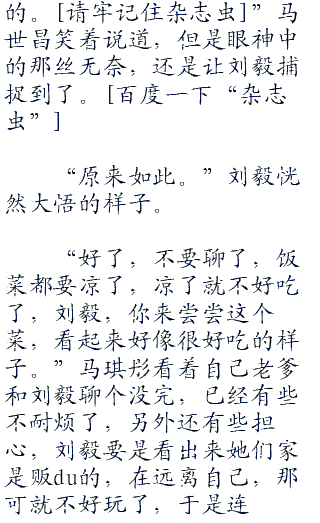 的。[请牢记住杂志虫]”马
世昌笑着说道，但是眼神中
的那丝无奈，还是让刘毅捕
捉到了。[百度一下“杂志
虫”]
“原来如此。”刘毅恍
然大悟的样子。
“好了，不要聊了，饭
菜都要凉了，凉了就不好吃
了，刘毅，你来尝尝这个
菜，看起来好像很好吃的样
子。”马琪彤看着自己老爹
和刘毅聊个没完，已经有些
不耐烦了，另外还有些担
心，刘毅要是看出来她们家
是贩du的，在远离自己，那
可就不好玩了，于是连